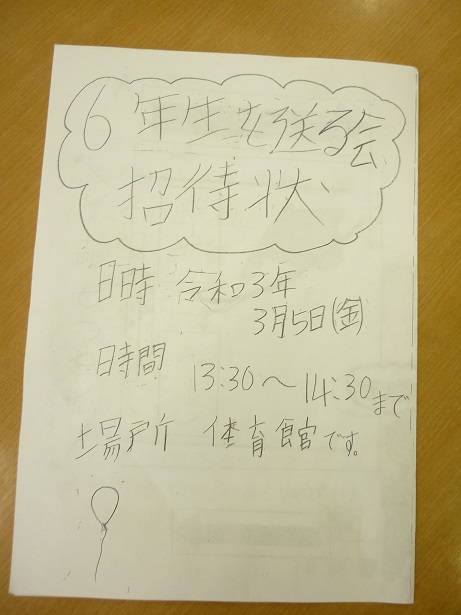 6年生を送る会
招待状
日時 令和3年
3月5日(金)
時間 13:30～14:30まで
場所 体育館です。